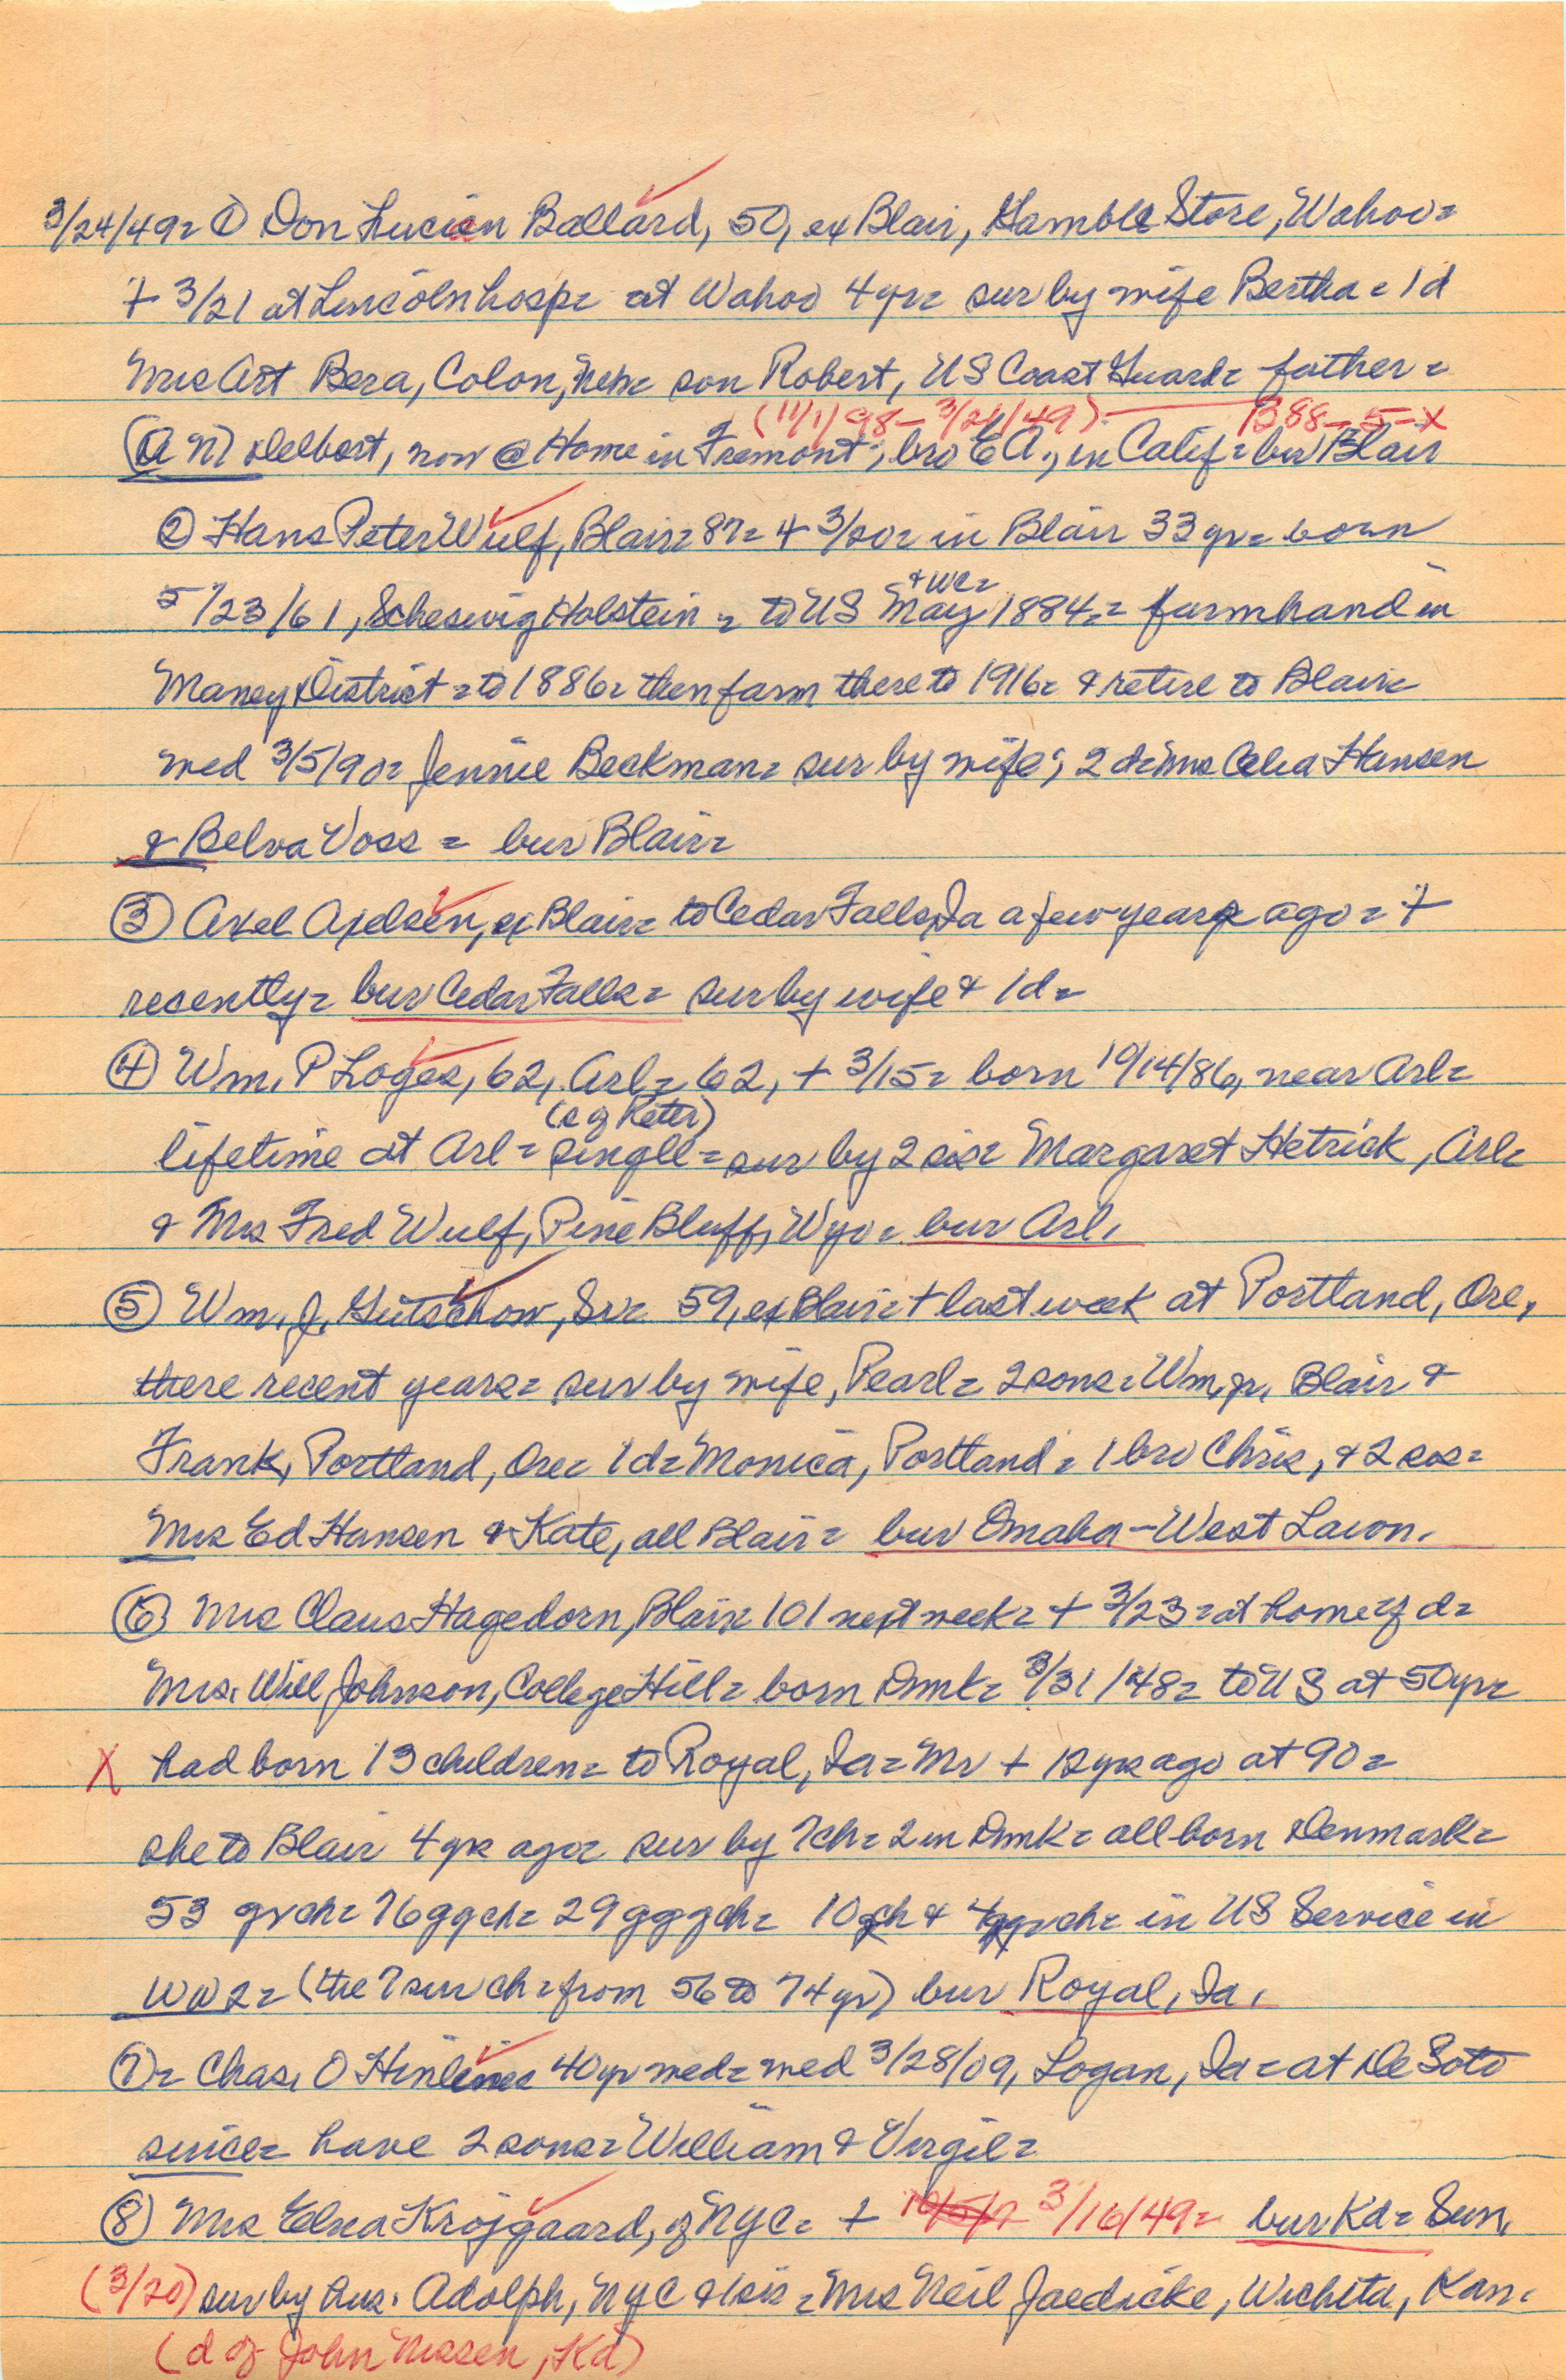 3/24/49= ① Don Lucien Ballard, 50, ex Blair, Gamble Store, Wahoo=
+ 3/21 at Lincoln hosp= at Wahoo 4yr= sur by wife Bertha= 1d
Mrs Art Bera, Colon, Neb= son Robert, US Coast Guard= father=
(11/1/98 – 3/21/49) — B88–5–X
(A N) Delbert, now @ Home in Fremont; bro EA., in Calif= bur Blair
② Hans Peter Wulf, Blair= 87= + 3/20= in Blair 33 yr= born
+ WC=
5/23/61, Scheswig Holstein = to US May 1884= farmhand in
Maney District = to 1886= then farm there to 1916= & retire to Blair=
med 3/5/90= Jennie Beckman= sur by wife; 2 d= Mrs Celia Hansen
& Belva Voss = bur Blair=
③ Axel Axelsen, ex Blair= to Cedar Falls, Ia a few years ago = +
recently= bur Cedar Falls= sur by wife & 1d=
④ Wm. P Loges, 62, Arl= 62, + 3/15= born 10/14/86, near Arl=
(s of Peter)
lifetime at Arl = single = sur by 2 sis= Margaret Hetrick, Arl=
& Mrs Fred Wulf, Pine Bluff, Wyo= bur Arl.
⑤ Wm. J. Gutschow, Sr= 59, ex Blair= + last week at Portland, Ore,
there recent years= sur by wife, Pearl= 2 sons= Wm, jr, Blair &
Frank, Portland, Ore= 1d= Monica, Portland= 1 bro Chris, & 2 sis=
Mrs Ed Hansen & Kate, all Blair= bur Omaha – West Lawn.
⑥ Mrs Claus Hagedorn, Blair= 101 next week= + 3/23= at home of d=
Mrs. Will Johnson, College Hill= born Dmk= 3/31/48= to US at 50yr=
X had born 13 children= to Royal, Ia= Mr + 12 yrs ago at 90=
she to Blair 4 yrs ago= sur by 7ch= 2 in Dmk= all born Denmark=
53 grch= 76 ggch= 29 gggch= 10 gch & 4 ggrch= in US Service in
WW2= (the 7 sur ch= from 56 to 74 yr) bur Royal, Ia.
⑦= Chas. O Hinline 40 yr med= med 3/28/09, Logan, Ia= at De Soto
since= have 2 sons= William & Virgil=
⑧ Mrs Elna Krojgaard, of NYC= + 3/16/49= bur Kd= Sun.
(3/20) sur by hus. Adolph, NYC & 1 sis = Mrs Neil Jaedicke, Wichita, Kan.
(d of John Nissen, Kd)